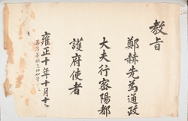 教旨
鄭赫先爲通政
大夫行密陽都
護府使者
雍正十年十月十